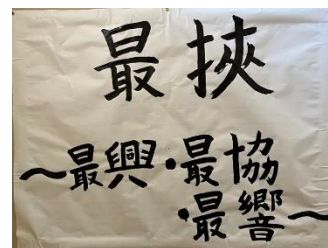 最挟
～最興・最協
・最響～